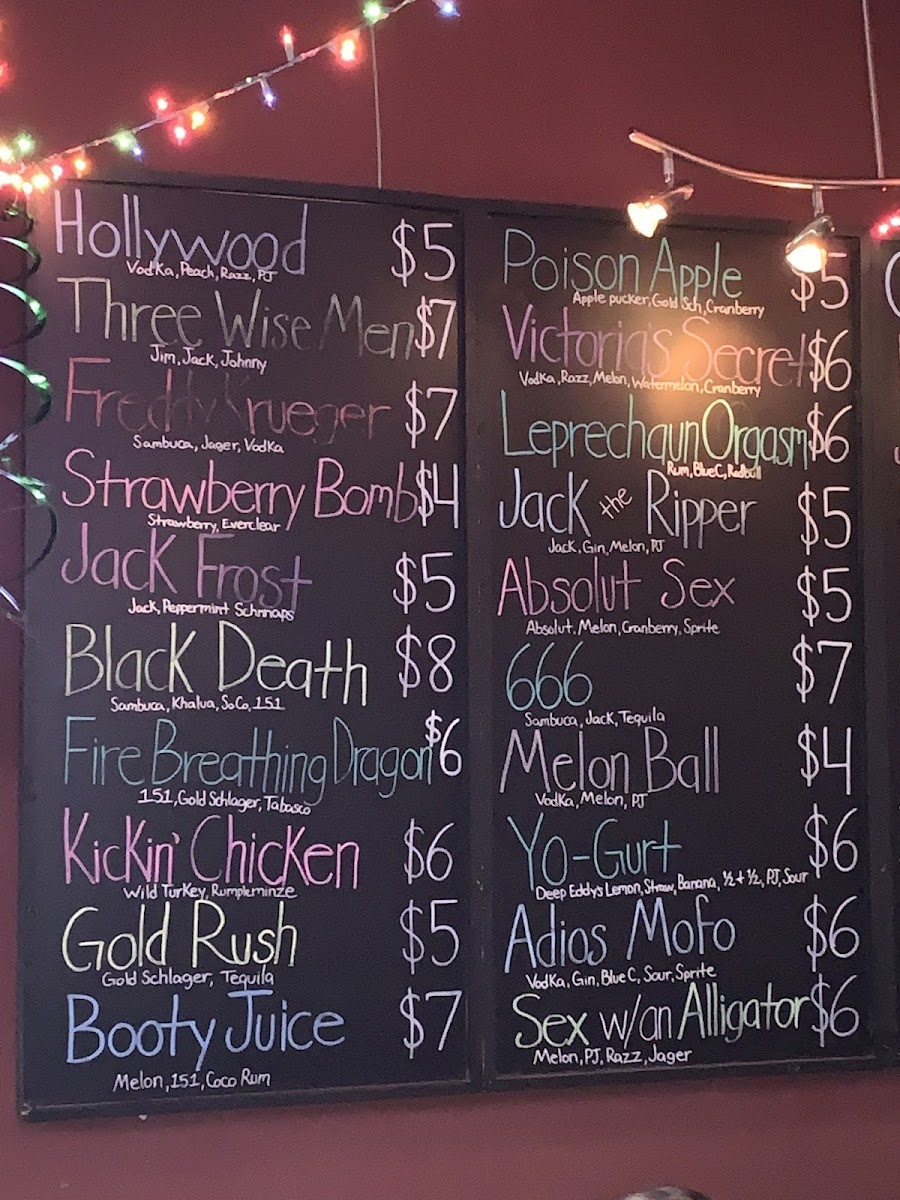 Hollywood $5
Vodka, Peach, Razz, PJ
Three Wise Men $7
Jim, Jack, Johnny
Freddy Krueger $7
Sambuca, Jager, Vodka
Strawberry Bomb $4
Strawberry, Everclear
Jack Frost $5
Jack, Peppermint Schnnaps
Black Death $8
Sambuca, Khalua, SoCo, 151
Fire Breathing Dragon $6
151, Gold Schlager, Tabasco
Kickin' Chicken $6
Wild Turkey, Rumpleminze
Gold Rush $5
Gold Schlager, Tequila
Booty Juice $7
Melon, 151, Coco Rum
Poison Apple $5
Apple pucker, Gold Sch, Cranberry
Victoria's Secret $6
Vodka, Razz, Melon, Watermelon, Cranberry
Leprechaun Orgasm $6
Rum, Blue C, Redbull
Jack the Ripper $5
Jack, Gin, Melon, PJ
Absolut Sex $5
Absolut, Melon, Cranberry, Sprite
666 $7
Sambuca, Jack, Tequila
Melon Ball $4
Vodka, Melon, PJ
Yo-Gurt $6
Deep Eddy's Lemon, Straw, Banana, ½ + ½, PJ, Sour
Adios Mofo $6
Vodka, Gin, Blue C, Sour, Sprite
Sex w/an Alligator $6
Melon, PJ, Razz, Jager